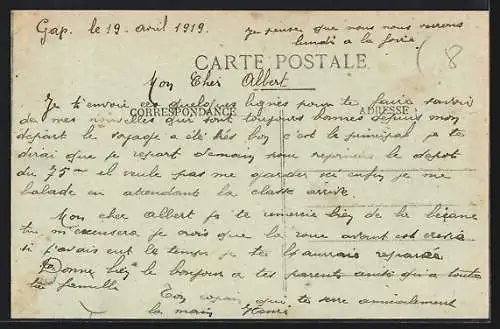 Gap. le 19. avril 1919.
Je pense que nous nous verrons
lundi a la foire
8
CARTE POSTALE
Mon Cher Albert
Je t'envoie ces quelques lignes pour te faire savoir
de mes nouvelles qui sont toujours bonnes depuis mon
CORRESPONDANCE
ADRESSE
depart le voyage a été très bon c'est le principal je te
dirai que je repart demain pour rejoindre le depot
du 75me il veule pas me garder ici enfin je me
balade en attendant la classe arrive.
Mon cher albert je te remercie bien de la beçane
tu m'excusera je crois que la roue avant est crevée
si j'avais eut le temps je te l'aurais reparée
Donne bien le bonjour a tes parents ainsi qu'a toute
ta famille
Ton copain qui te serre amicalement
la main Henri